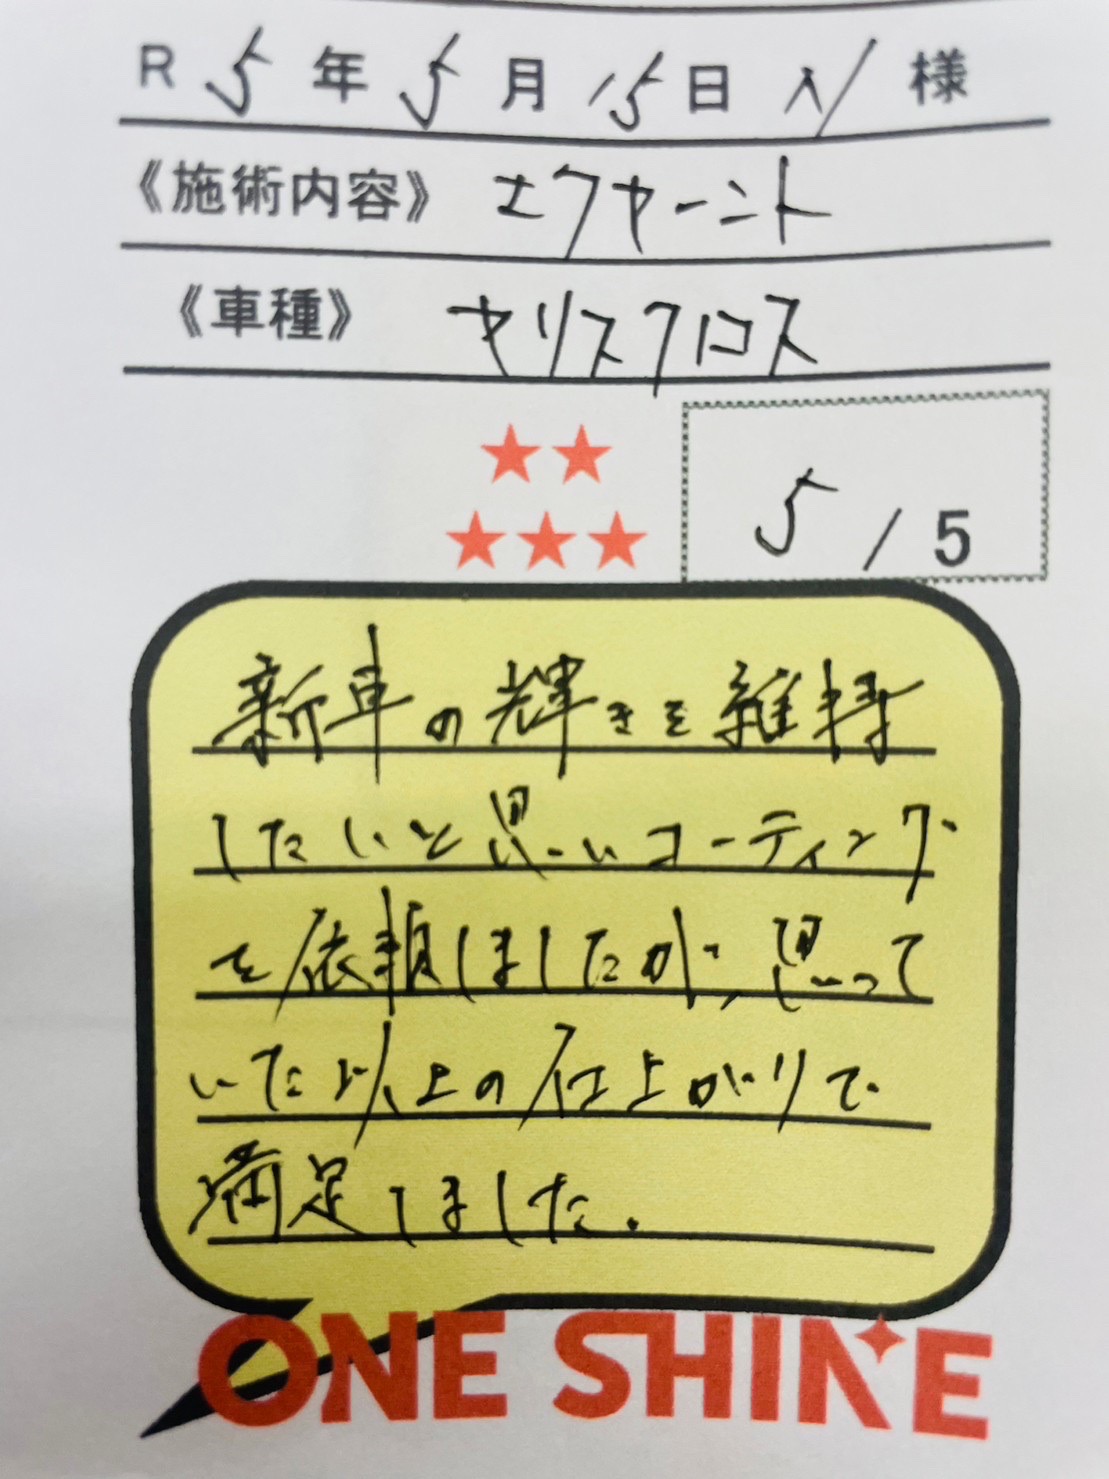 R 5 年 5 月 15 日 N 様
《施術内容》 エクヤーント
《車種》 ヤリスクロス
5 / 5
新車の輝きを維持
したいと思いコーティング
を依頼しましたが、思って
いた以上の仕上がりで
満足しました。
ONE SHINE